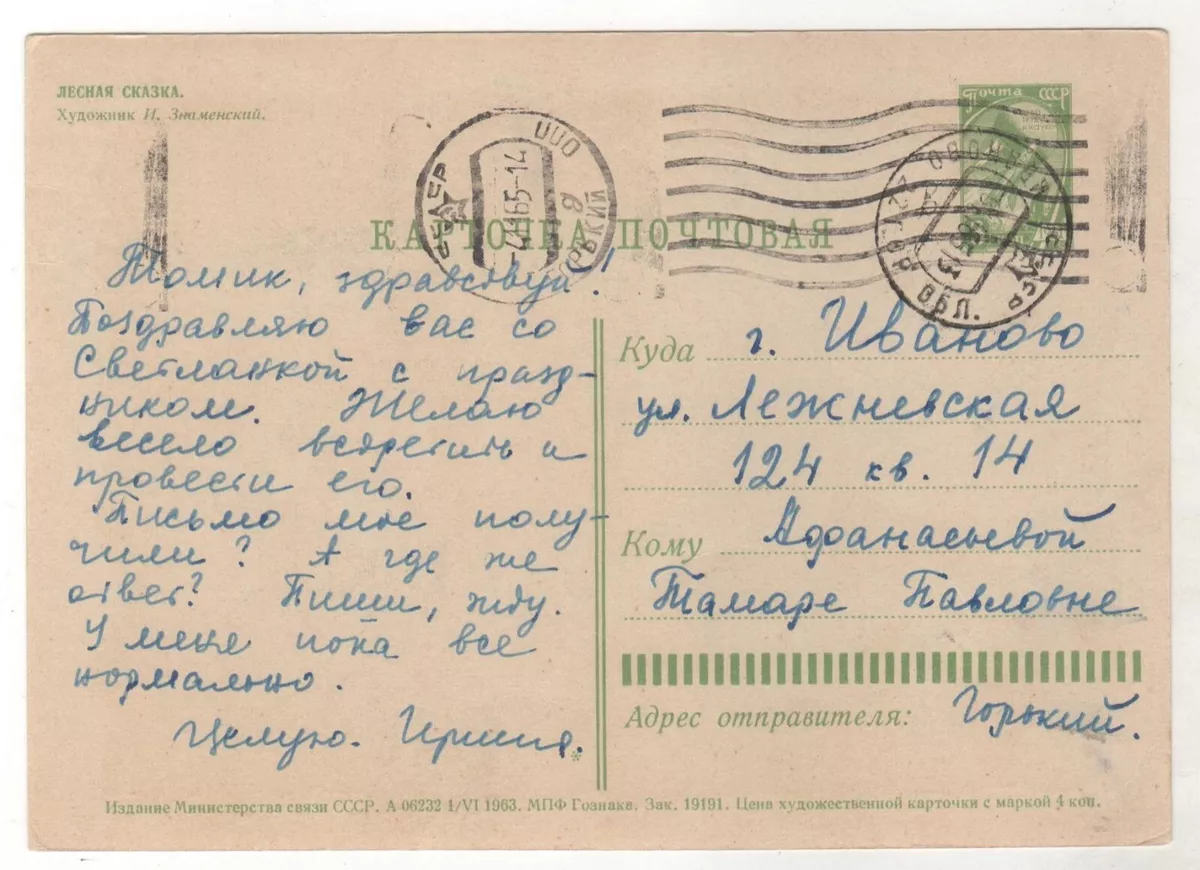 ЛЕСНАЯ СКАЗКА.
Художник И. Знаменский.
Почта СССР
КАРТОЧКА ПОЧТОВАЯ
Томик, здравствуй!
Поздравляю вас со
Светланкой с празд-
ником. Желаю
весело встретить и
провести его.
Письмо мое полу-
чили? А где же
ответ? Пиши, жду.
У меня пока все
нормально.
Целую. Ирина.
Куда г. Иваново
ул. Лежневская
124 кв. 14
Кому Афанасьевой
Тамаре Павловне
Адрес отправителя: Горький.
Издание Министерства связи СССР. А 06232 1/VI 1963. МПФ Гознака. Зак. 19191. Цена художественной карточки с маркой 4 коп.